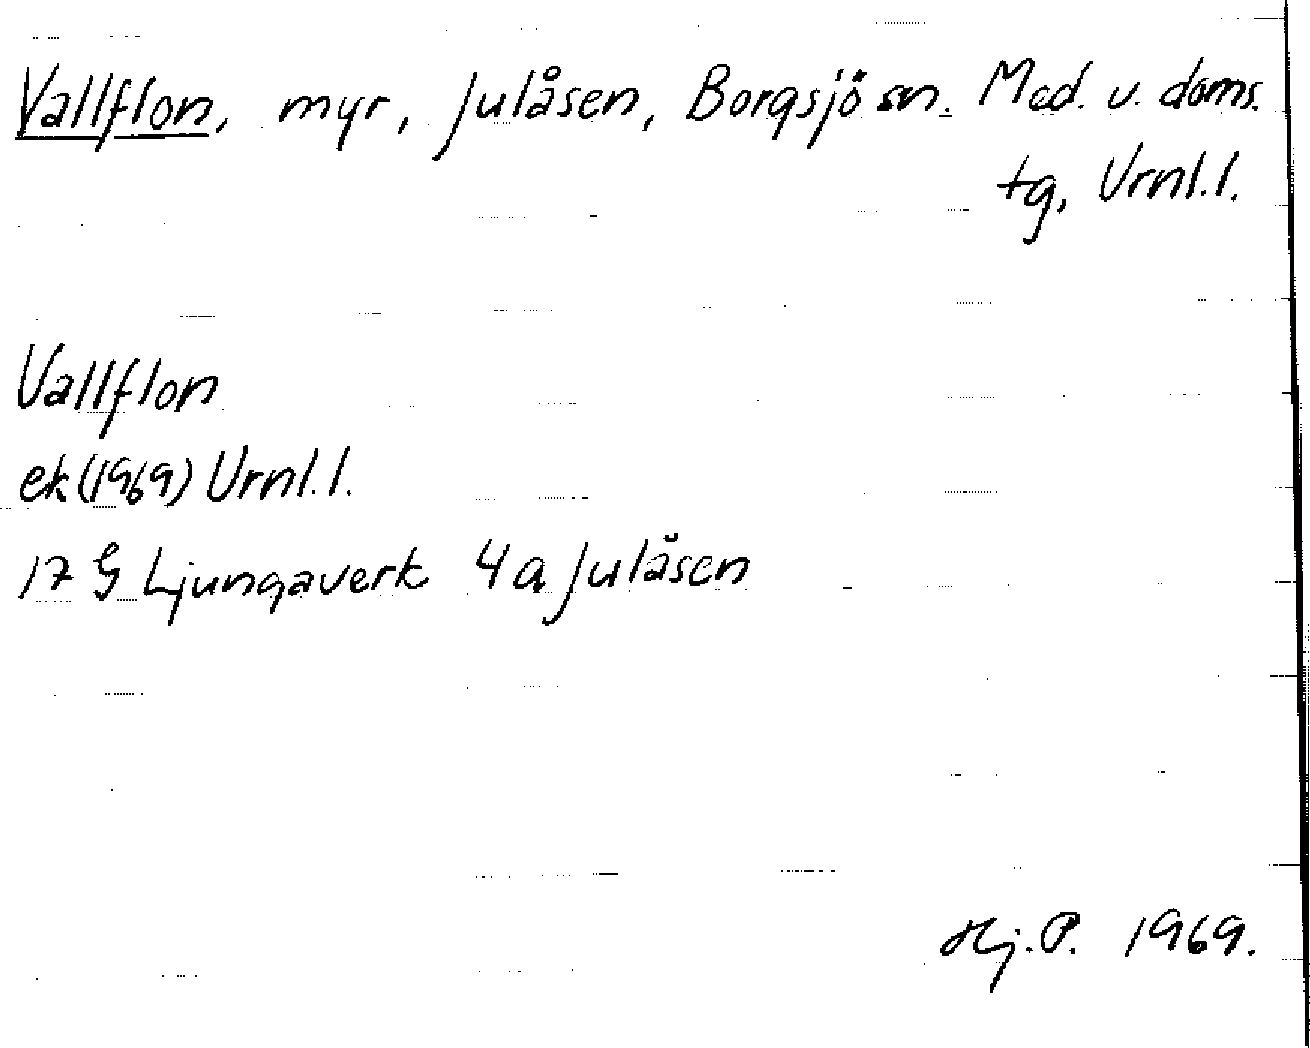 Vallflon, myr, Julåsen, Borgsjö sn. Med. v. doms.
tg, Vrnl.l.
Vallflon
ek(1969) Vrnl.l.
17 G Ljungaverk 4a Julåsen
Hj.P. 1969.